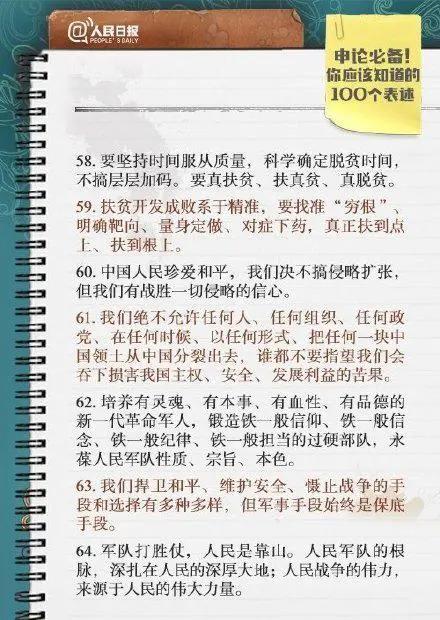 @人民日报
PEOPLE'S DAILY
申论必备!
你应该知道的
100个表述
58. 要坚持时间服从质量，科学确定脱贫时间，
不搞层层加码。要真扶贫、扶真贫、真脱贫。
59. 扶贫开发成败系于精准，要找准“穷根”、
明确靶向、量身定做、对症下药，真正扶到点
上、扶到根上。
60. 中国人民珍爱和平，我们决不搞侵略扩张，
但我们有战胜一切侵略的信心。
61. 我们绝不允许任何人、任何组织、任何政
党、在任何时候、以任何形式、把任何一块中
国领土从中国分裂出去，谁都不要指望我们会
吞下损害我国主权、安全、发展利益的苦果。
62. 培养有灵魂、有本事、有血性、有品德的
新一代革命军人，锻造铁一般信仰、铁一般信
念、铁一般纪律、铁一般担当的过硬部队，永
葆人民军队性质、宗旨、本色。
63. 我们捍卫和平、维护安全、慑止战争的手
段和选择有多种多样，但军事手段始终是保底
手段。
64. 军队打胜仗，人民是靠山。人民军队的根
脉，深扎在人民的深厚大地；人民战争的伟力，
来源于人民的伟大力量。